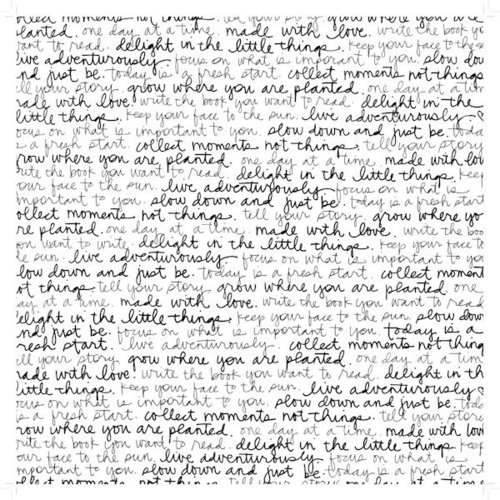 ollect moments not things. tell your story. grow where you are
planted. one day at a time. made with love. write the book yo
want to read. delight in the little things. keep your face to the s
live adventurously. focus on what is important to you. slow dow
nd just be. today is a fresh start. collect moments not things
ell your story. grow where you are planted. one day at a tim
made with love. write the book you want to read. delight in the
little things. keep your face to the sun. live adventurously.
ocus on what is important to you. slow down and just be. toda
s a fresh start. collect moments not things. tell your story
row where you are planted. one day at a time. made with lov
rite the book you want to read. delight in the little things. keep
our face to the sun. live adventurously. focus on what is
mportant to you. slow down and just be. today is a fresh start
ollect moments not things. tell your story. grow where yo
re planted. one day at a time. made with love. write the boo
ou want to write. delight in the little things. keep your face to
he sun. live adventurously. focus on what is important to yo
low down and just be. today is a fresh start. collect moment
ot things. tell your story. grow where you are planted. one
ay at a time. made with love. write the book you want to read
elight in the little things. keep your face to the sun. slow dow
nd just be. focus on what is important to you. today is a
resh start. live adventurously. collect moments not thing
ell your story. grow where you are planted. one day at a tim
made with love! write the book you want to read. delight in th
little things. keep your face to the sun. live adventurously
ocus on what is important to you. slow down and just be. toda
s a fresh start. collect moments not things. tell your story
row where you are planted. one day at a time. made with lov
rite the book you want to read. delight in the little things. keep
our face to the sun. live adventurously. focus on what is
mportant to you. slow down and just be. today is a fresh start
llect moments not things. tell your story. one day at a time